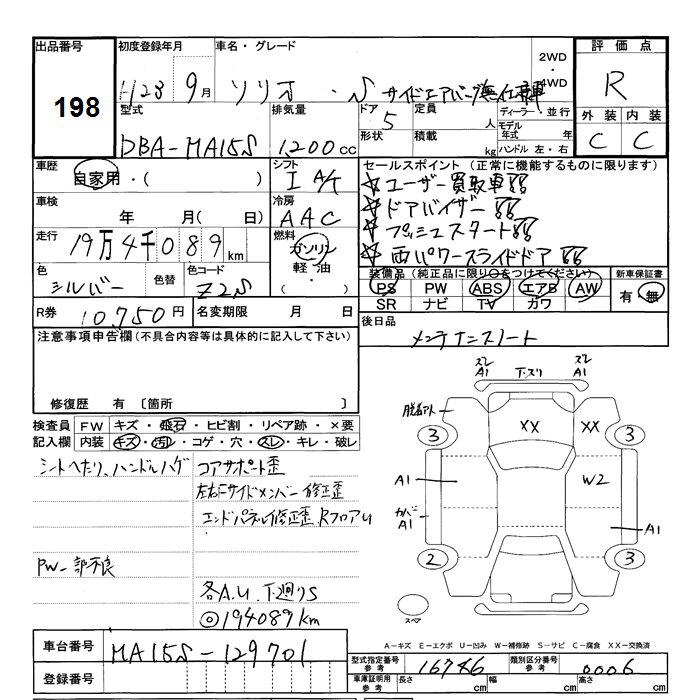 出品番号 初度登録年月 車名・グレード 2WD ・ 4WD 評価点
198
H23 9月 ソリオ ・ S サイドエアバッグ無仕様 R
型式 排気量 ドア 5 定員 人 ディーラー・並行 外装 内装
DBA-MA15S 1,200cc 形状 積載 kg モデル年式 年 ハンドル 左・右 C C
車歴 自家用・( ) シフト I A/T
セールスポイント (正常に機能するものに限ります)
☆ユーザー買取車!!
☆ドアバイザー!!
☆プッシュスタート!!
☆両パワースライドドア!!
車検 年 月( 日) 冷房 AAC
走行 19万4千089km 燃料 ガソリン 軽油・ ( )
色 シルバー 色替 色コード Z2S
装備品 (純正品に限り○をつけてください) 新車保証書
PS PW ABS エアB AW 有・無
SR ナビ TV カワ
R券 10,750円 名変期限 月 日
後日品 メンテナンスノート
注意事項申告欄(不具合内容等は具体的に記入して下さい)
修復歴 有 〔箇所 〕
検査員 FW キズ・飛石・ヒビ割・リペア跡・×要
記入欄 内装 キズ・汚れ・コゲ・穴・スレ・キレ・破レ
シートヘたり、ハンドルハゲ
コアサポート歪
左右Fサイドメンバー修正歪
エンドパネル修正歪 RフロアU
PW一部不良
各A.U.下廻りS
◎194089km
スレ A1 下スリ スレ A1
XX XX
3 3
A1 W2
カバーA1 A1
2 3
スペア
A-キズ E-エクボ U-凹み W-補修跡 S-サビ C-腐食 XX-交換済
車台番号 MA15S-129701
型式指定番号 参考 16746 類別区分番号 参考 0006
登録番号
車庫証明用 参考 長さ cm 幅 cm 高さ cm